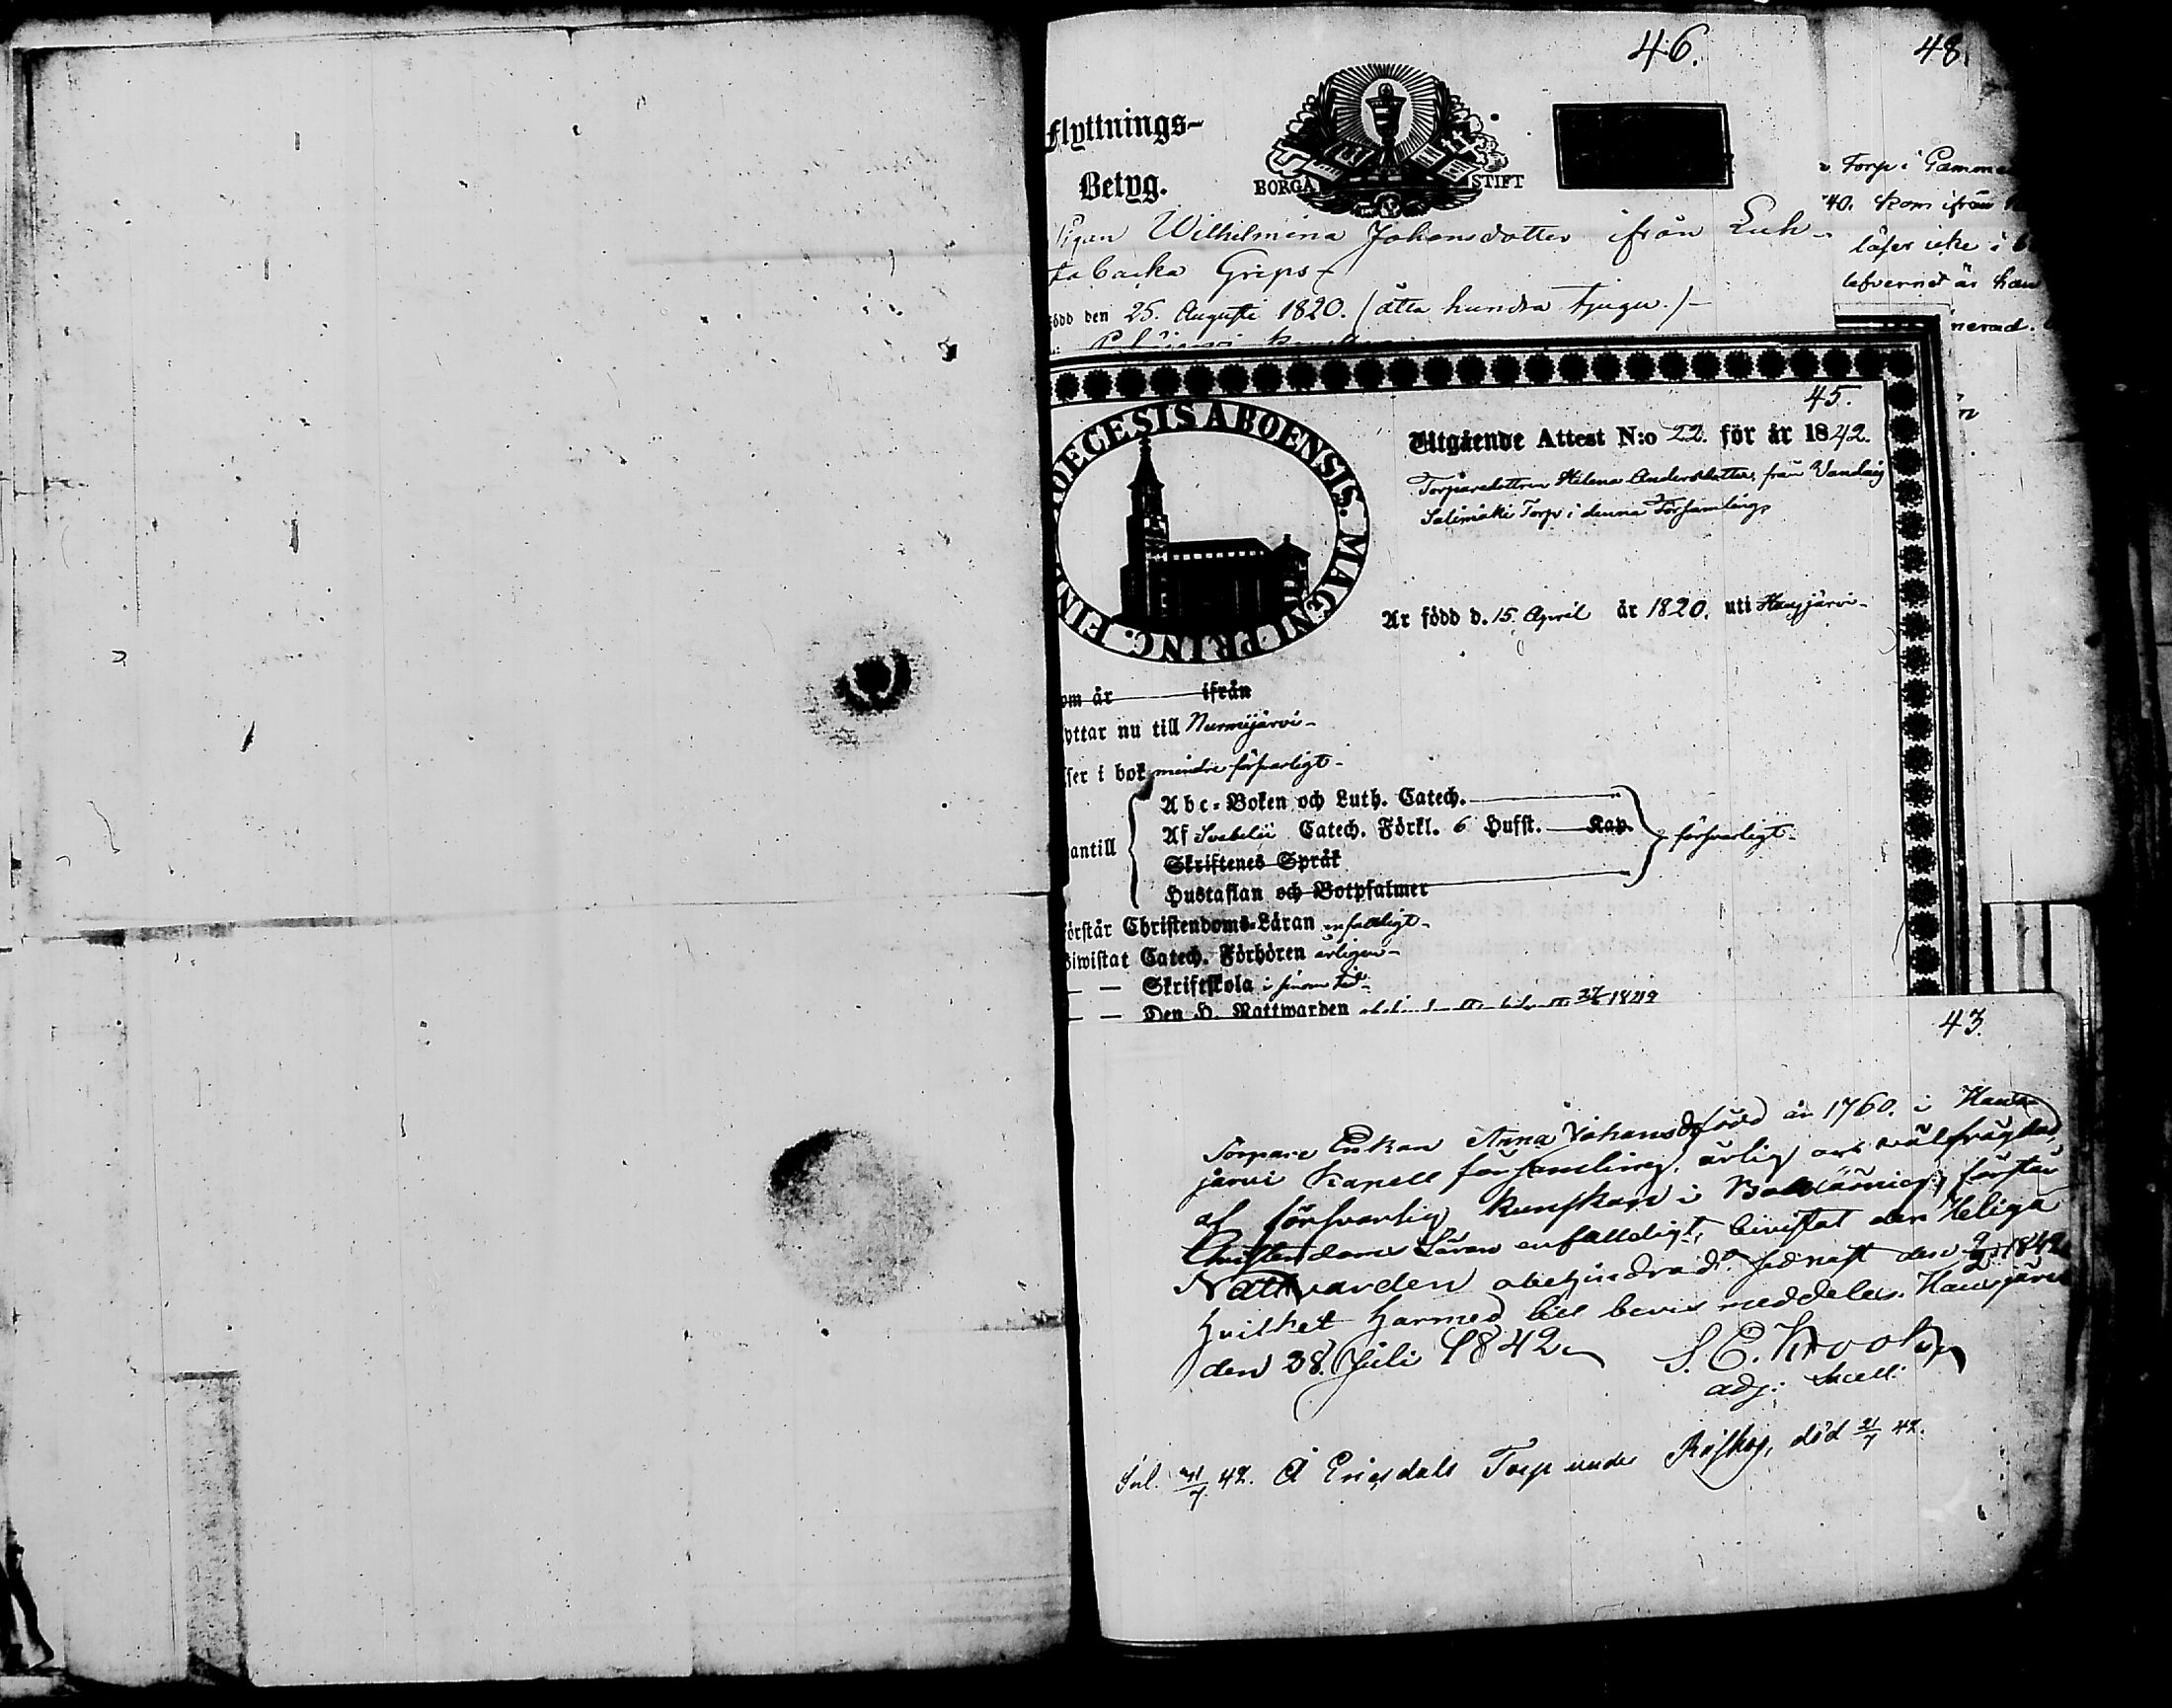 46.
48.
Flyttnings-
Betyg.
BORGÅ STIFT
Pigan Wilhelmina Johansdotter ifrån Luh-
tabacka Grips
född den 25. Augusti 1820. (åtta hundra tjugu.)
Torp i Gamm
40. kom ifrån
läser icke i
lefvernet är
45.
DIOECESIS ABOENSIS. MAGNI PRINC. FIN
Utgående Attest N:o 22. för år 1842.
Torparedottren Helena Andersdotter, från
Salimäki Torp i denna Församling,
Är född d. 15. April år 1820. uti Hausjärvi-
om år ifrån
yttar nu till Nurmijärvi-
ser i bok mindre försvarligt-
antill
Abc-Boken och Luth. Catech.
Af Svebelii Catech. Förkl. 6 Hufst. Kap.
försvarligt-
Skriftenes Språk
Hustaflan och Botpsalmer
örstår Christendoms-Läran enfalldigt-
Biwistat Catech. Förhören årligen-
— — Skriftskola i sinom tid-
— — Den H. Nattwarden
43.
Torpare Enkan Anna Johansdr född år 1760. i Haus-
järvi Kapell församling, ärlig och välfräjdad,
af försvarlig kunskap i förstår
Christendoms Läran enfalldigt, bivistat den Heliga
Nattvarden obehindradt sednast den 1842
hvilket härmed till bevis meddelas. Hausjärvi
den 28. Juli 1842.
S. E. Krook
adj. Sacell.
Inl. 31/7 42. Å Ericsdals Torp under död 31/7 42.